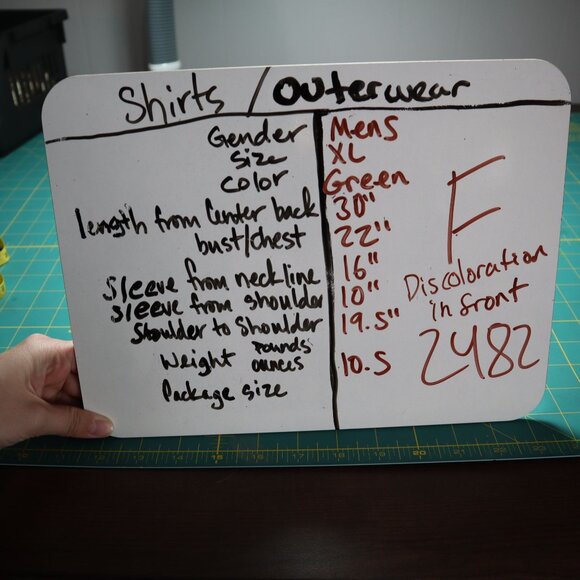 Shirts / Outerwear
Gender Mens
Size XL
Color Green
length from Center back 30"
bust/chest 22"
Sleeve from neckline 16"
Sleeve from shoulder 10"
Shoulder to Shoulder 19.5"
Weight Pounds
ounces 10.5
Package size
F
Discoloration
in front
2482